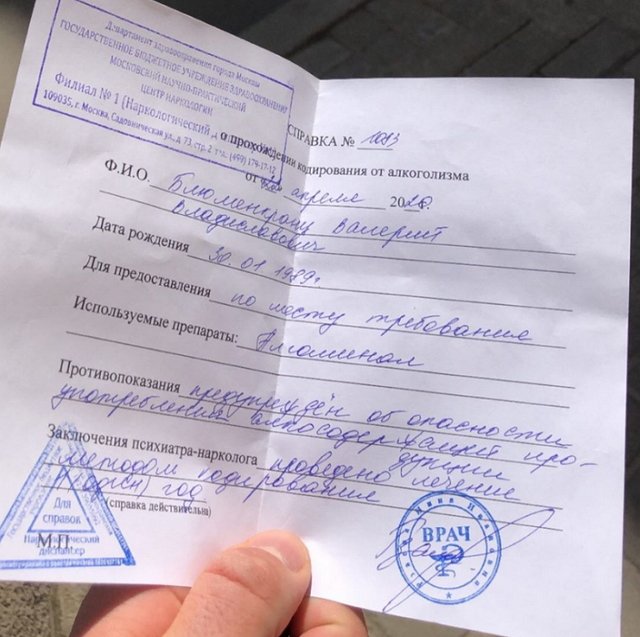 Департамент здравоохранения города Москвы
ГОСУДАРСТВЕННОЕ БЮДЖЕТНОЕ УЧРЕЖДЕНИЕ ЗДРАВООХРАНЕНИЯ
МОСКОВСКИЙ НАУЧНО-ПРАКТИЧЕСКИЙ
ЦЕНТР НАРКОЛОГИИ
Филиал № 1 (Наркологический
109035, г. Москва, Садовническая ул., д. 73, стр. 2 тел. (499) 179-17-12
СПРАВКА № 1093
о прохождении кодирования от алкоголизма
от апреля 2020г.
Ф.И.О. Блюменкранц Валерий
Владиславович
Дата рождения 30.01.1989г.
Для предоставления по месту требования
Используемые препараты:
Противопоказания предупреждён об опасности
употребления алкосодержащей про-
дукции
Заключения психиатра-нарколога проведено лечение
методом кодирования
1 (один) год
(справка действительна)
Для
справок
М.П
Наркологический
диспансер
ВРАЧ